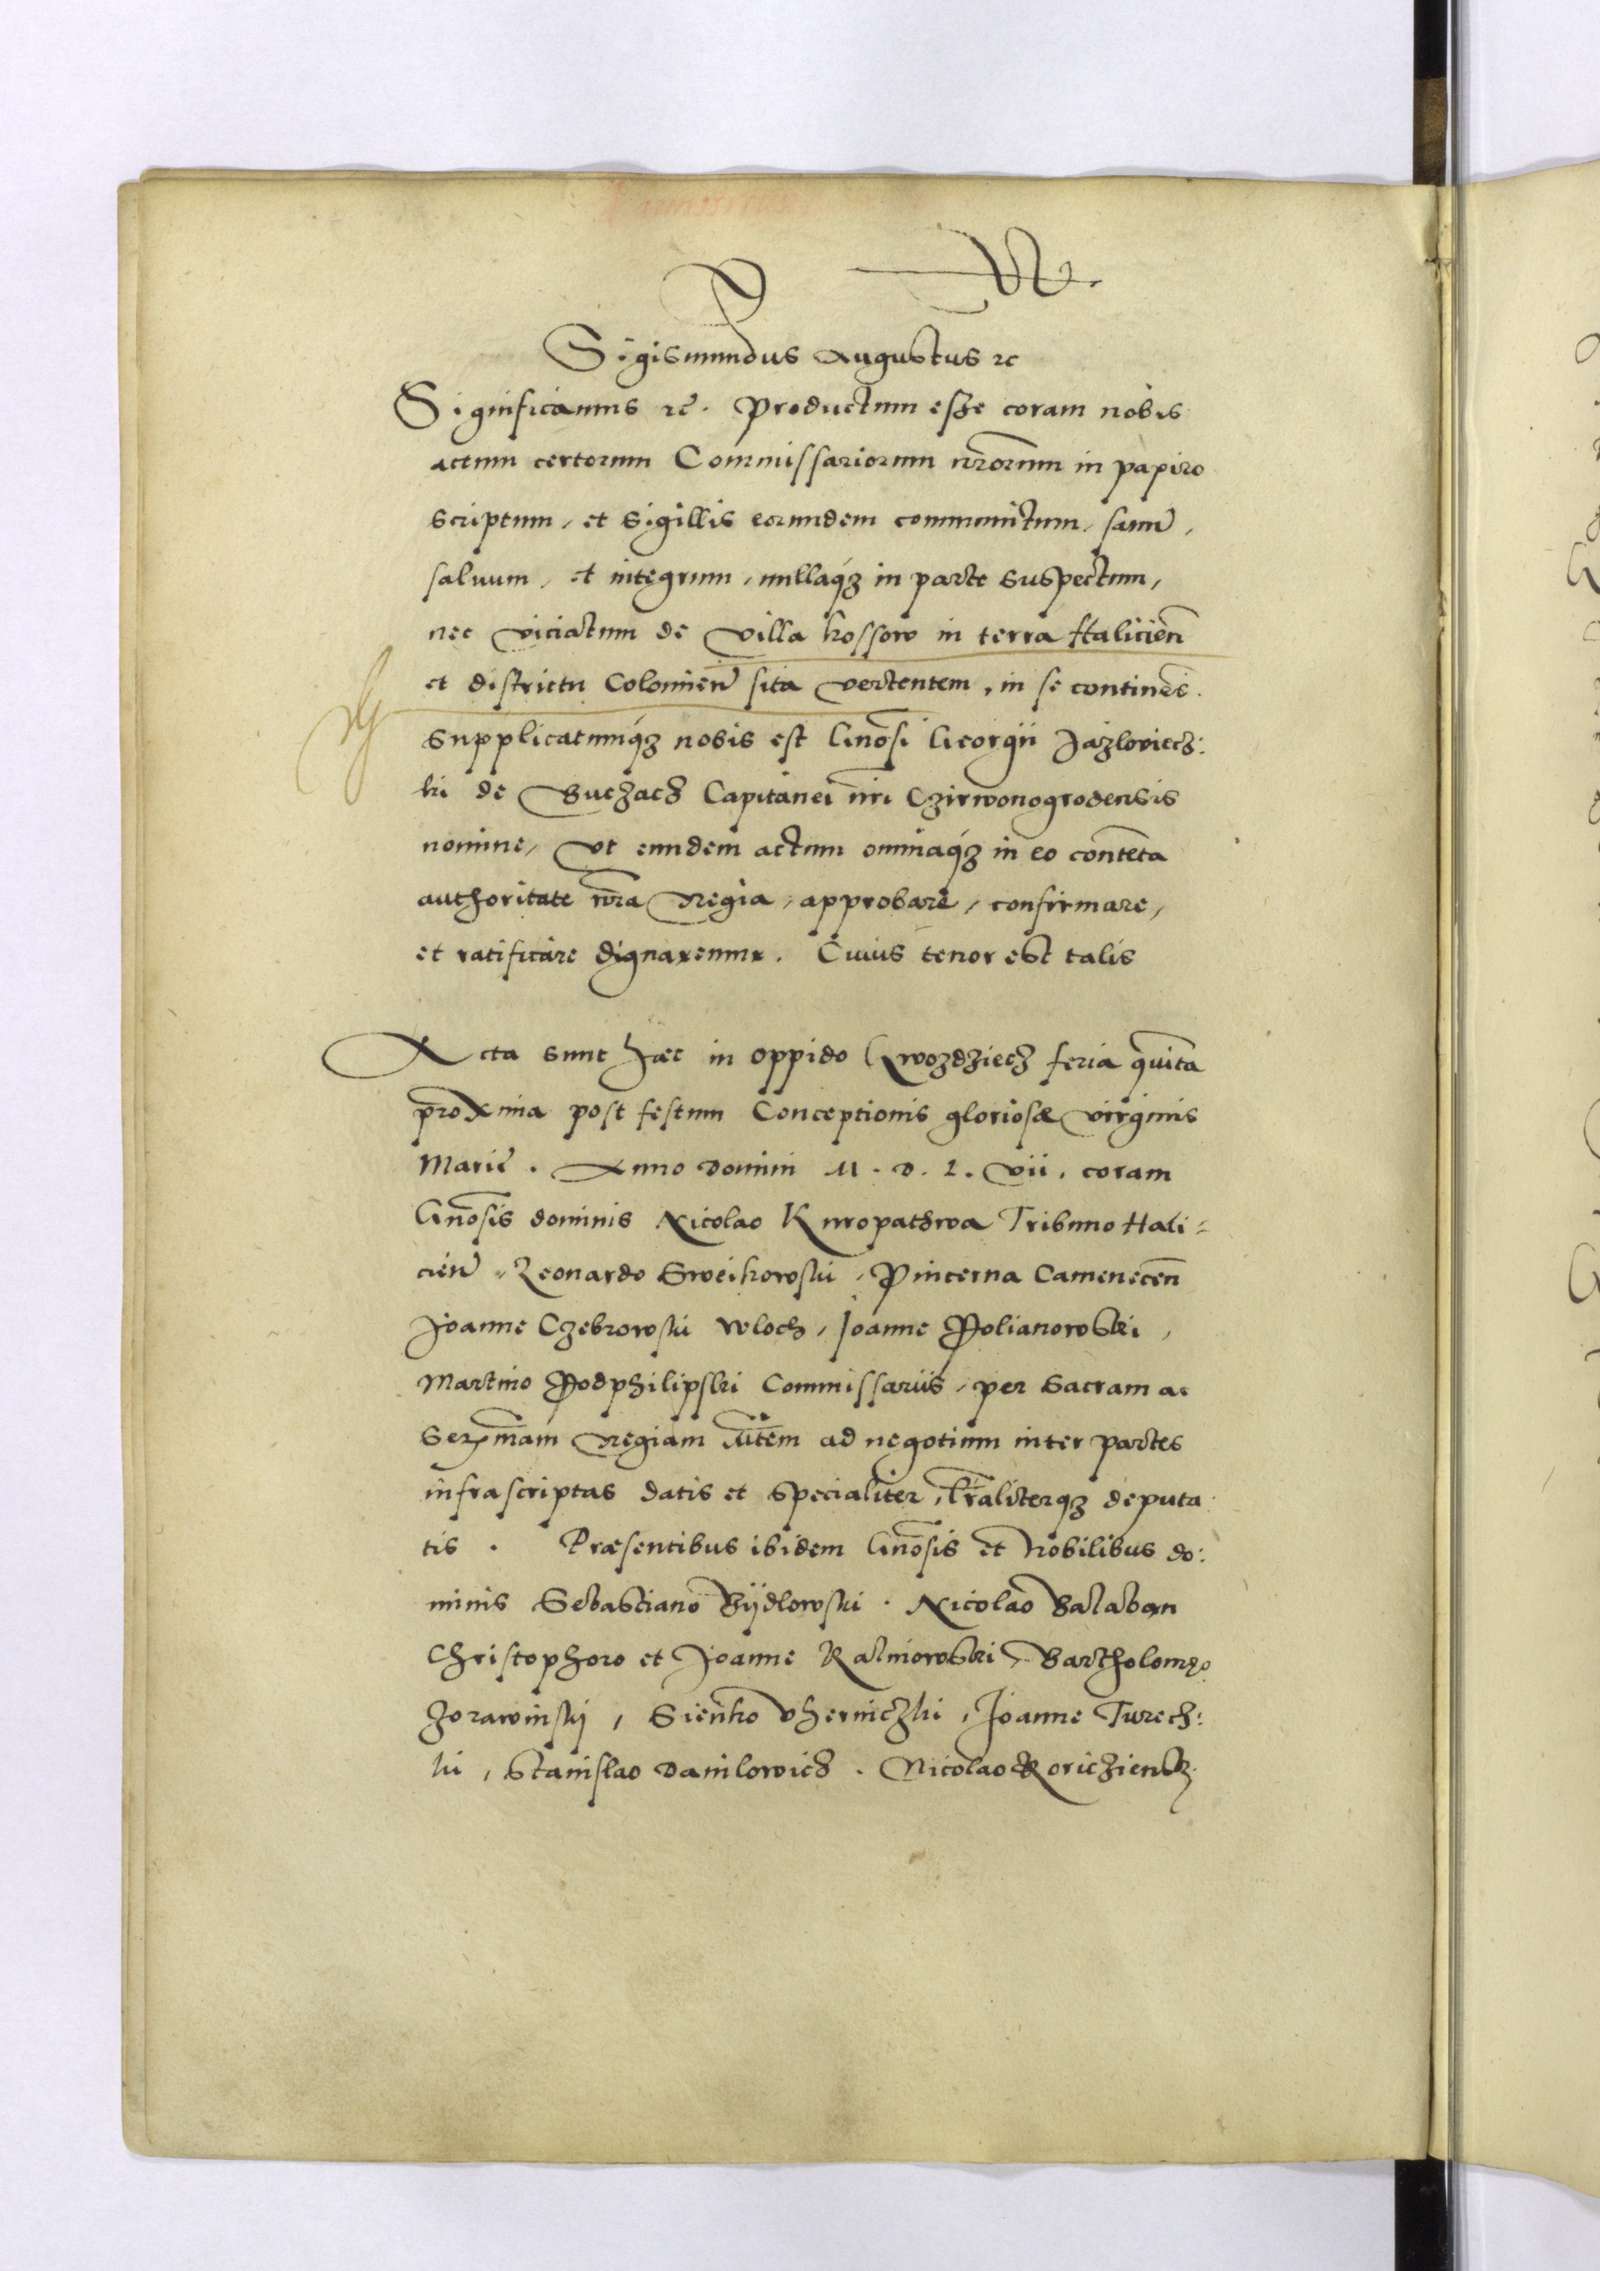 Sigismundus Augustus rc
Significamus rc. Productum esse coram nobis
actum certorum Commissariorum nrorum in papiro
scriptum, et sigillis eorundem communitum, sanu,
saluum, et integrum, nullaqz in parte suspectum,
nec viciatum de villa kossow in terra Halicien
et districtu Colomien sita vertentem, in se continens.
Supplicatumqz nobis est Gnosi Georgii Jazlowiecz:
ki de Buczacz Capitanei nri Czirwonogrodensis
nomine, vt eundem actum omniaqz in eo contenta
authoritate nra Regia, approbare, confirmare,
et ratificare dignaremur. Cuius tenor est talis
Acta sunt haec in oppido Gwozdziecz feria quinta
proxima post festum Conceptionis gloriosae virginis
Marie. Anno domini M. D. L. vii. coram
Gnosis dominis Nicolao Kuropathwa Tribuno Hali=
cien, Leonardo Sweikowski, Pincerna Camenecen
Joanne Czebrowski wloch, Joanne Polianowski,
Martino Podphilipski Commissariis, per Sacram ac
Serzmam Regiam Mtem ad negotium inter partes
infrascriptas datis et specialiter, lraliterqz deputa
tis. Praesentibus ibidem Gnosis et Nobilibus do:
minis Sebastiano Bydlowski. Nicolao Balaban
Christophoro et Joanne Kalniowski, Bartholomeo
Zorawinskj, Sienko Vherniczki, Joanne Turecz:
ki, Stanislao Danilowicz. Nicolao